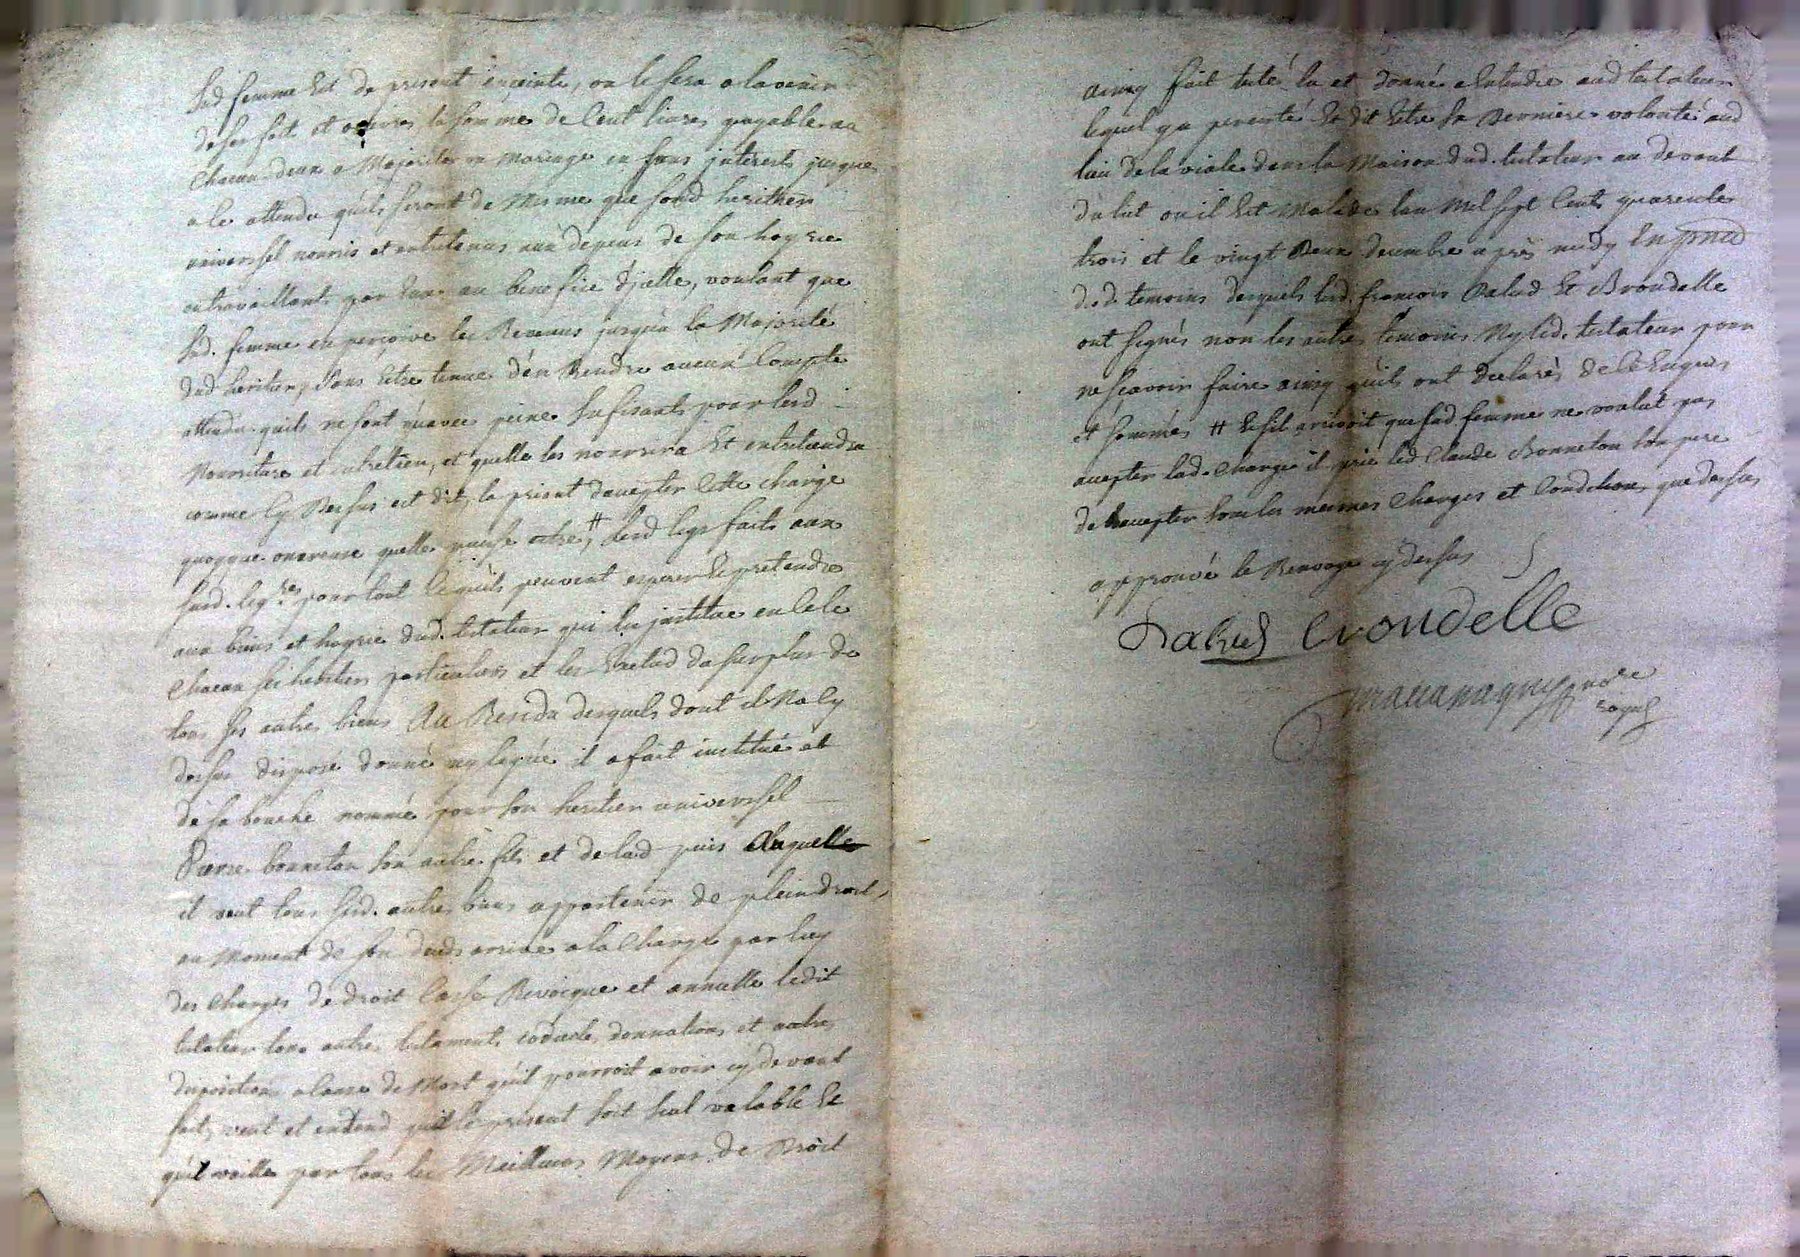 sad femme Est de present enceinte, ou le sera a lavenir
de ses fait et oeuvres la somme de Cent livres payable au
chacun deux a Majorité ou mariage en sans jnterests jusques
a le attendu quils seront de Mesme que sond heritier
universel nourris et entretenus aux depens de son hoyrie
en travaillants par Eux au benefice d'jcelle, voulant que
sad. femme en perçoive les Revenus jusqua la Majorité
dud heritier, sans Estre tenue d'en Rendre aucun Compte
attendu quils ne sont qu'avec peine sufisants pour leurd
Nourriture et entretien, et quelle les nourrira Et entretiendra
comme Cy Dessus est dit, la priant daccepter Cette charge
quoyque onereuse quelle puisse estre, # lesd legs faits aux
susd. leg.res pour tout Ce quils peuvent esperer Et pretendre
aux biens et hoyrie dud. testateur qui les jnstitue en Cele
Chacun ses heritiers particuliers et les Exclud du surplus de
tous ses autre biens Au Residu desquels dont il Na Cy
dessus disposé donné ny legué il a fait institué et
de sa bouche nommé pour son heritier universsel
Pierre bonneton son autre fils et de lad puis Auquelle
il veut tous sesd. autres biens appartenir de plein droit,
au Moment de son deceds arrivé a la Charge par luy
des Charges de droit Casse Revocque et annulle ledit
testateur tous autres testaments codicile, donnations et autres
disposition a Cause de Mort qu'il pourroit avoir cy devant
fait, veut et entend que le present soit seul valable Et
qu'il vaille par tous les Meilleurs Moyens de Droit
ainsy fait recité lu et donné a Entendre aud testateur
lequel y a percisté Et dit Estre sa Derniere volonté aud
lieu de la viale dans la Maison dud. testateur au devant
du lit ou il Est Malade lan Mil sept Cents quarente
trois et le vingt Deux decembre après midy En pnce
d. d. temoins desquels lesd. francois Palud Et Brondelle
ont signés non les autres temoins Ny led. testateur pour
ne scavoir faire ainsy quils ont declarés de Ce Enquis
et sommés # Et sil arrivoit que sad femme ne voulut pas
accepter lad. charge il prie led Claude Bonneton son pere
de laccepter sous les mesmes Charges et Condition que dessus
approuvé le Renvoye cy dessus
Palud Brondelle
nore
royal